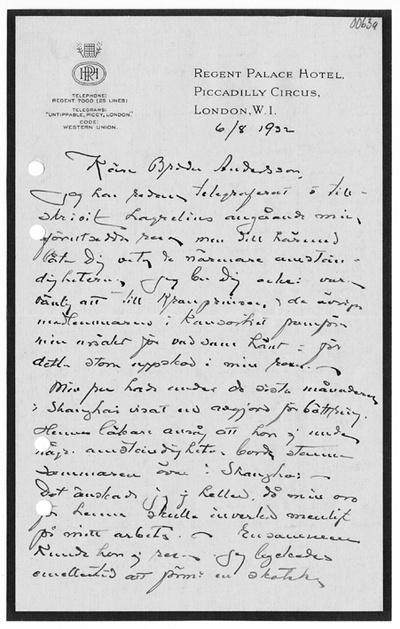 00639
TELEPHONE:
REGENT 7000 (25 LINES)
TELEGRAMS:
"UNTIPPABLE, PICCY, LONDON."
CODE:
WESTERN UNION.
REGENT PALACE HOTEL,
PICCADILLY CIRCUS,
LONDON, W.I.
6/8 1932
Käre Broder Andersson,
Jag har redan telegraferat o till-
skrivit Lagrelius angående min
resa, men vill härmed
låta Dig veta de närmare omstän-
digheterna. Jag ber dig var
vänlig att till Kronprinsen, o de övriga
medlemmarna i framföra
min för vad som hänt o för
detta stora uppskov i min resa.
Min fru hade under de sista månaderna
i Shanghai visat en avgjord förbättring.
Hennes läkare ansåg att hon ej under
några omständigheter borde stanna
sommaren över i Shanghai
Det önskade jag ej heller, då min oro
för henne skulle inverka menligt
på mitt arbete. Ensammen
kunde hon ej resa. Jag lyckades
emellertid att finna en